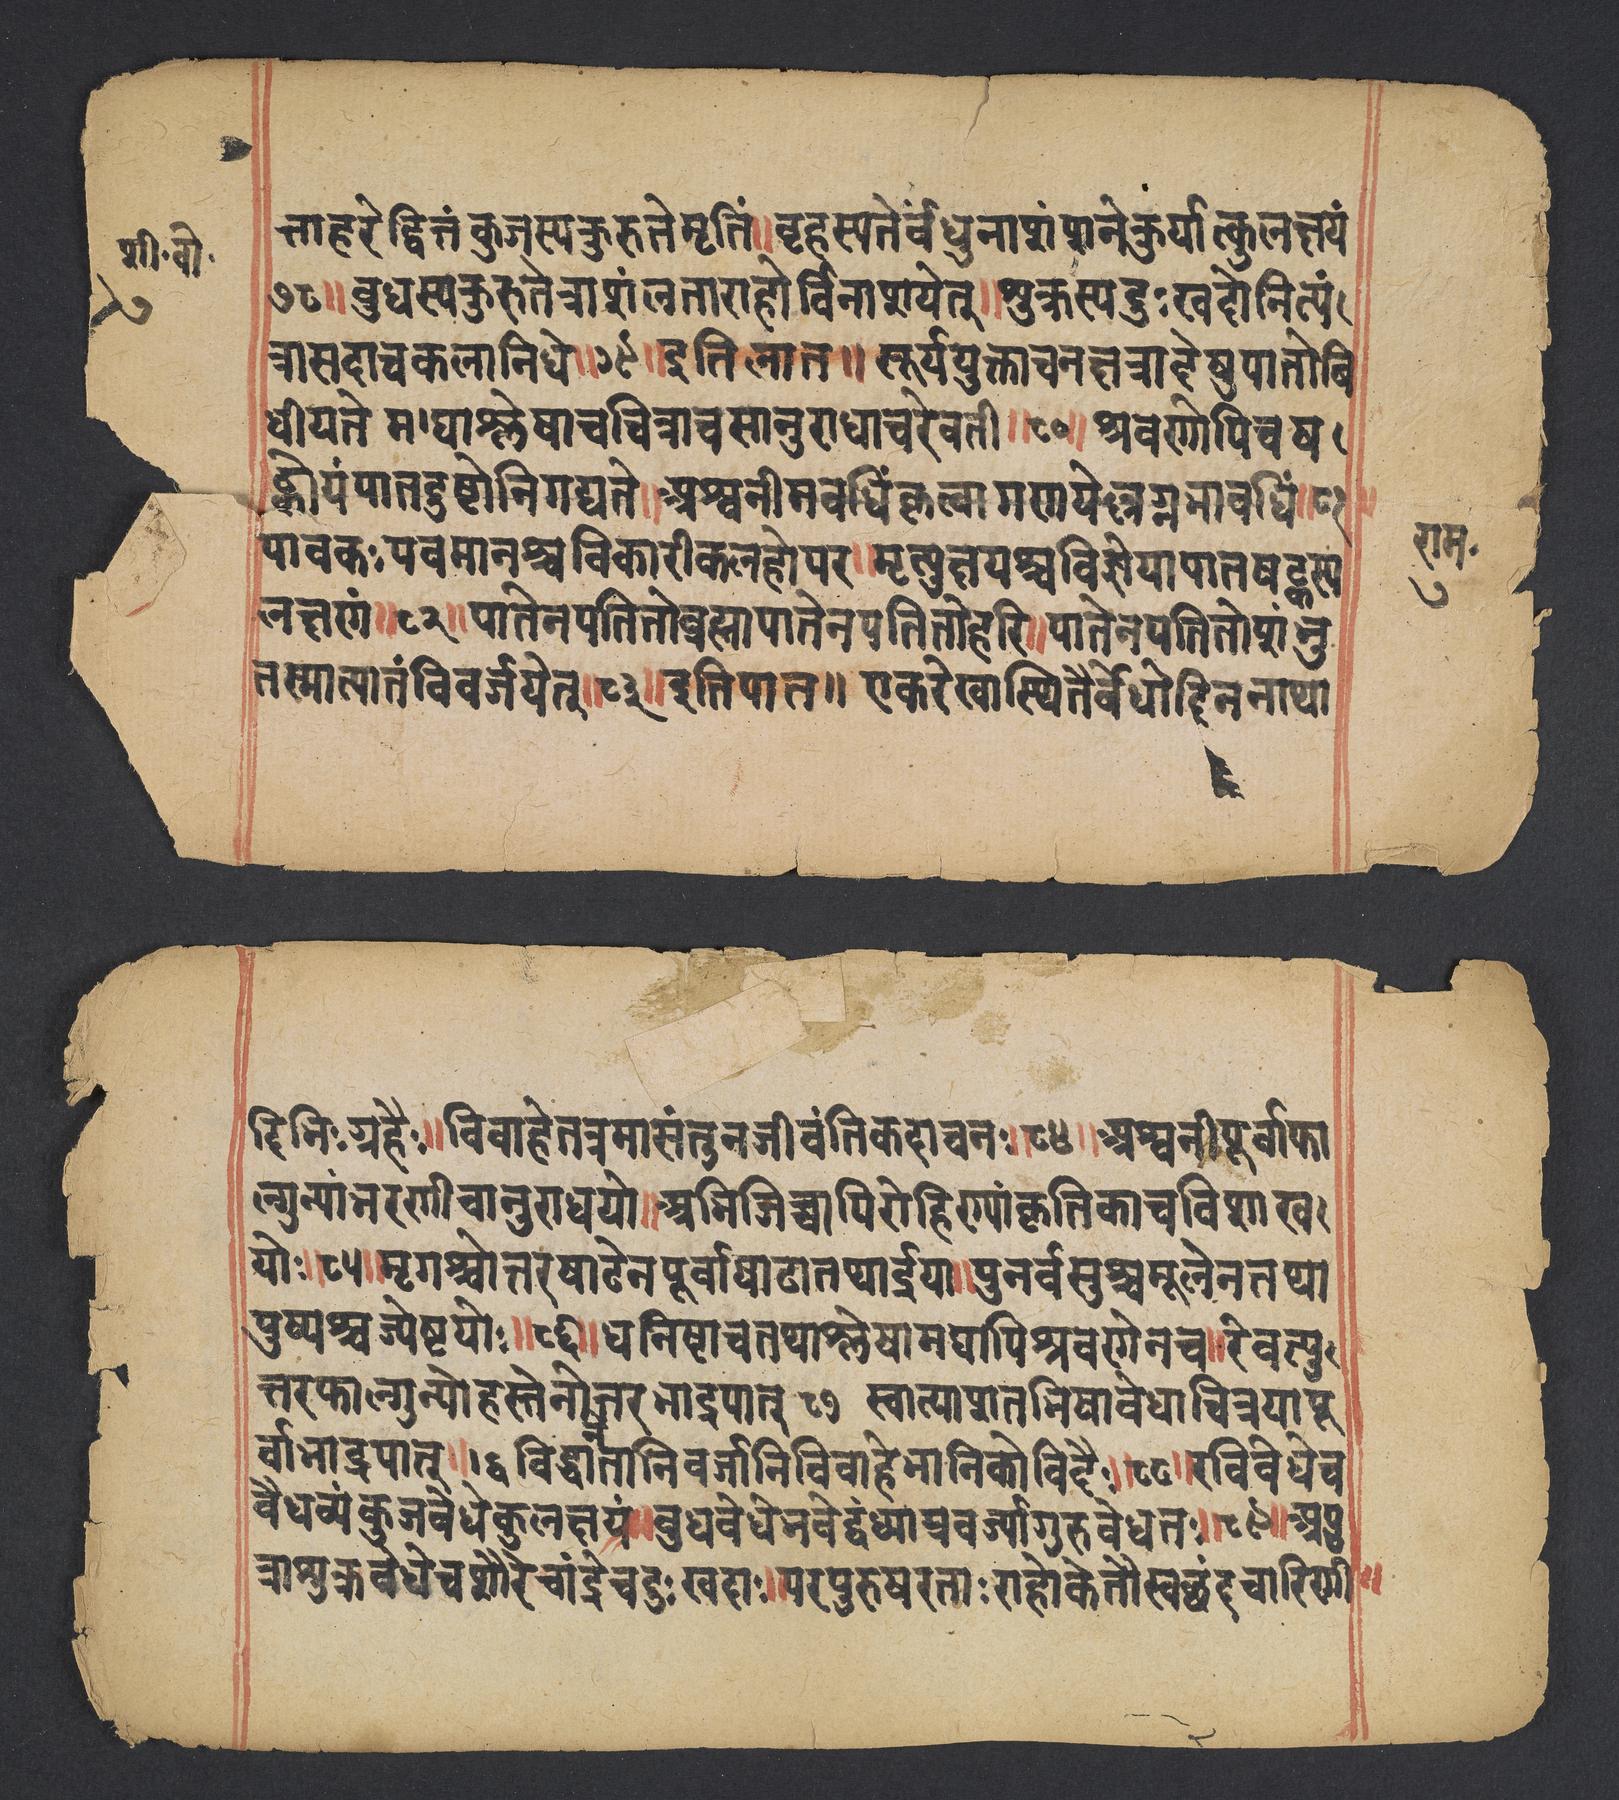 त्ताहरेद्वित्तं कुजस्यकुरुत्तेमृतिं॥वृहस्पतेर्वंधुनाशं शनेकुर्यात्कुलक्षयं
शी॰बो॰
७८॥बुधस्यकुरुतेत्राशं लतताराहोर्विनाशयेत्॥शुक्रस्यदुःखदोनित्यं
७
त्रासदाचकलानिधे॥७९॥इति लात॥ सूर्ययुक्ताचनक्षत्राद्देषुपातोवि
धीयते मघाश्लेषाचचित्राचसानुराधाचरेवती॥८०॥श्रवणोपिचष
ट्कोयंपातदुष्टोनिगद्यते॥अश्वनीमवधिंकृत्वागणयेल्लग्नभावधिं॥८१॥
पावकःपवमानश्चविकारीकलहोपर॥मृत्युक्षयश्चविज्ञेयापातषट्कस्य
राम॰
७
लक्षणं॥८२॥पातेनपतितोब्रह्मापातेनपतितोहरि॥पातेनपतितोशंनु
तस्मात्पातंविवर्जयेत्॥८३॥इतिपात॥ एकरेखास्थितैर्वेधोदिननाथा
दिभिःग्रहैः॥विवाहेतत्रमासंतुनजीवंतिकदाचनः॥८४॥अश्वनीपूर्वाफा
ल्गुन्यांभरणीचानुराधयो॥अभिजिच्चापिरोहिण्यांकृतिकाचविशाख
योः॥८५॥मृगश्चोत्तरषाढेनपूर्वाषाढातथार्द्रया॥पुनर्वसुश्चमूलेनतथा
पुष्यश्चज्येष्टयोः॥८६॥धनिष्टाचतथाश्लेषामघापिश्रवणेनच॥रेवत्यु
त्तरफाल्गुन्योहस्तेनोत्तरभाद्रपात् ८७ स्वात्याशतभिषावेधाचित्रयापू
र्वाभाद्रपात्॥विद्धान्येतानिवर्जानिविवाहेभानिकोविदैः॥८८॥रविवेधेच
वैधव्यंकुजवेधेकुलक्षयं॥बुधवेधेभवेद्वंध्याप्रवर्ज्यागुरुवेधतः॥८९॥अपु
त्राशुक्रवेधेचशौरेचांद्रेचदुःखदाः॥परपुरुषरताःराहोकेतौस्वछंदचारिणी॥